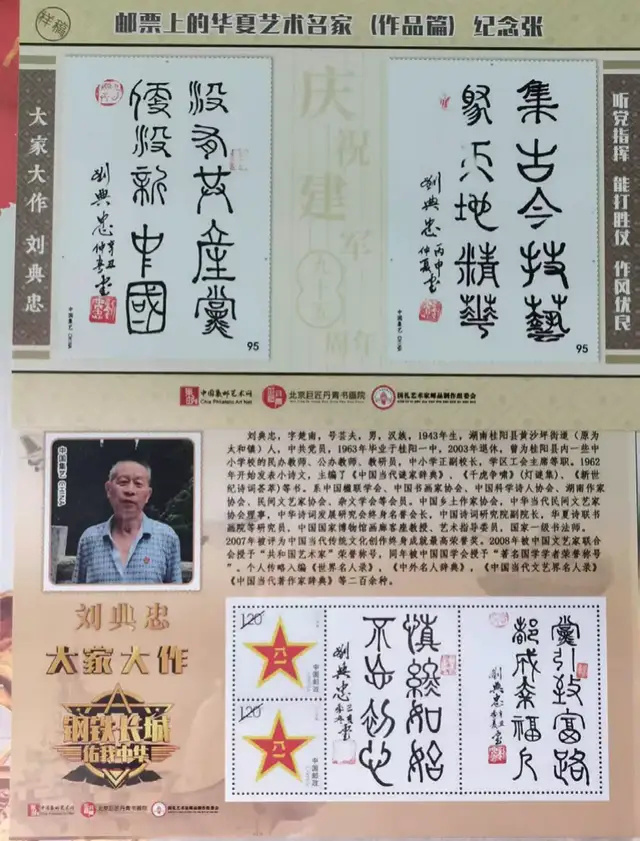 样稿
邮票上的华夏艺术名家（作品篇）纪念张
大家大作 刘典忠
没有共产党
便没新中國
劉典忠
辛丑
仲春書
95
庆祝建军
九十五
周年
集古今技藝
聚天地精華
劉典忠
丙申
仲夏書
95
听党指挥 能打胜仗 作风优良
中国集邮艺术网
China Philatelic Art Net
北京巨匠丹青书画院
国礼艺术家邮品制作组委会
刘典忠，字楚南，号芸夫，男，汉族，1943年生，湖南桂阳县黄沙坪街道（原为
太和镇）人，中共党员，1963年毕业于桂阳一中，2003年退休，曾为桂阳县内一些中
小学校的民办教师、公办教师、教研员，中小学正副校长，学区工会主席等职。1962
年开始发表小诗文，主编了《中国当代谜家辞典》，《千虎争啸》(灯谜集)，《新世
纪诗词荟萃》等书。系中国楹联学会、中国书画家协会、中国科学诗人协会、湖南作家
协会、民间文艺家协会、杂文学会等会员，中国乡土作家协会、中华当代民间文艺家
协会理事，中华诗词发展研究会终身名誉会长，中国诗词研究院副院长，华夏诗联书
画院等研究员，中国国家博物馆画廊客座教授、艺术指导委员，国家一级书法师。
2007年被评为当代传统文化创作终身成就最高荣誉奖。2008年被中国文艺家联合
会授予“共和国艺术家”荣誉称号，同年被中国国学会授予“著名国学学者荣誉称号
”。个人传略入编《世界名人录》，《中外名人辞典》，《中国当代文艺界名人录》
《中国当代著作家辞典》等二百余种。
刘典忠
大家大作
钢铁长城
佑我中华
1.20
八一
中国邮政
1.20
八一
中国邮政
慎終如始
不忘初心
劉典忠
黨引致富路
都成幸福人
劉典忠
中国集邮艺术网
北京巨匠丹青书画院
国礼艺术家邮品制作组委会